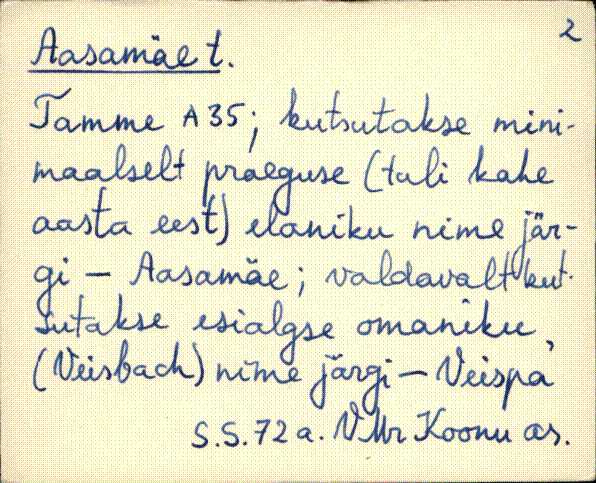 2
Aasamäe t.
Tamme A 35; kutsutakse mini-
maalselt praeguse (tuli kahe
aasta eest) elaniku nime jär-
gi — Aasamäe; valdavalt kut-
sutakse esialgse omaniku
(Veisbach) nime järgi — Veispa'
S.S. 72 a. VMr Koonu as.